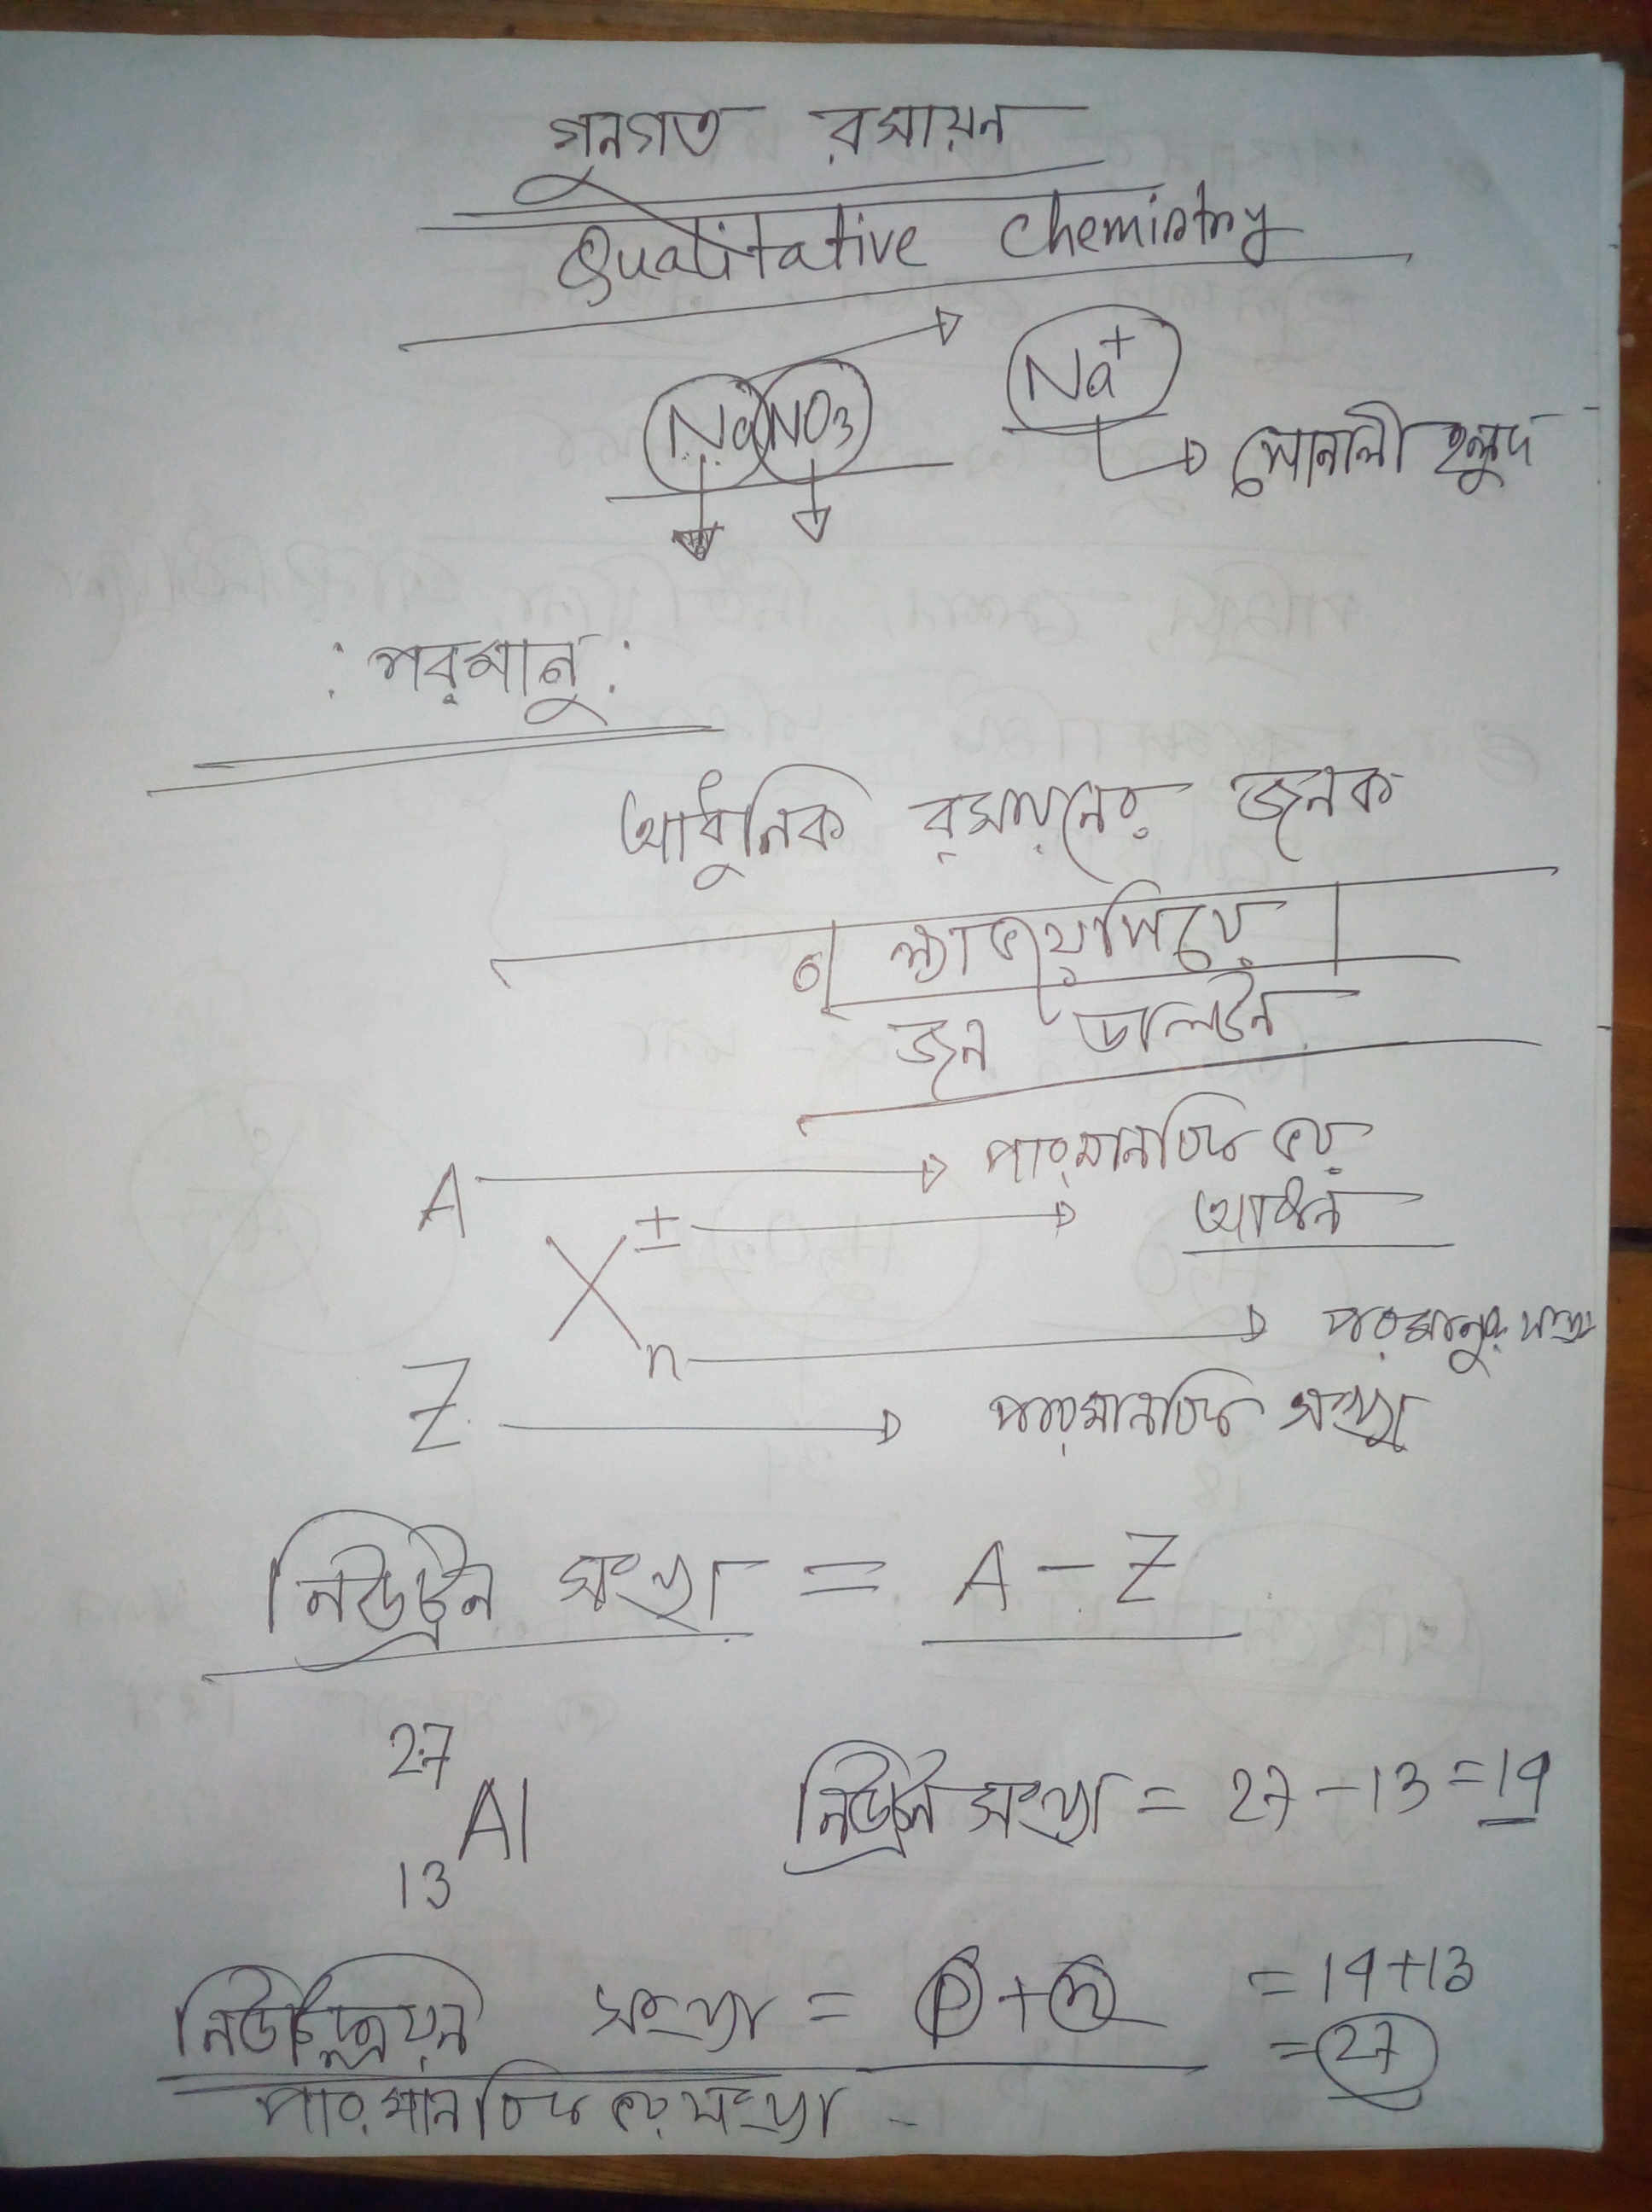 গুনগত রসায়ন
Qualitative Chemistry
NaNO3
Na+
সোনালী হলুদ
: পরমানু :
আধুনিক রসায়নের জনক
ল্যাভয়সিয়ে
জন ডালটন
A পারমানবিক ভর
X ± আধান
n পরমানুর সংখ্যা
Z পারমানবিক সংখ্যা
নিউট্রন সংখ্যা = A - Z
27
Al
13
নিউট্রন সংখ্যা = 27 - 13 = 14
নিউক্লিয়ন সংখ্যা = P + n = 14+13
= 27
পারমানবিক ভর সংখ্যা -